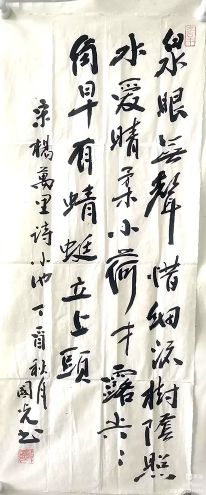 泉眼無聲惜細流樹蔭照
水愛晴柔小荷才露尖〻
角早有蜻蜓立上頭
宋楊萬里诗小池丁酉秋月國光书